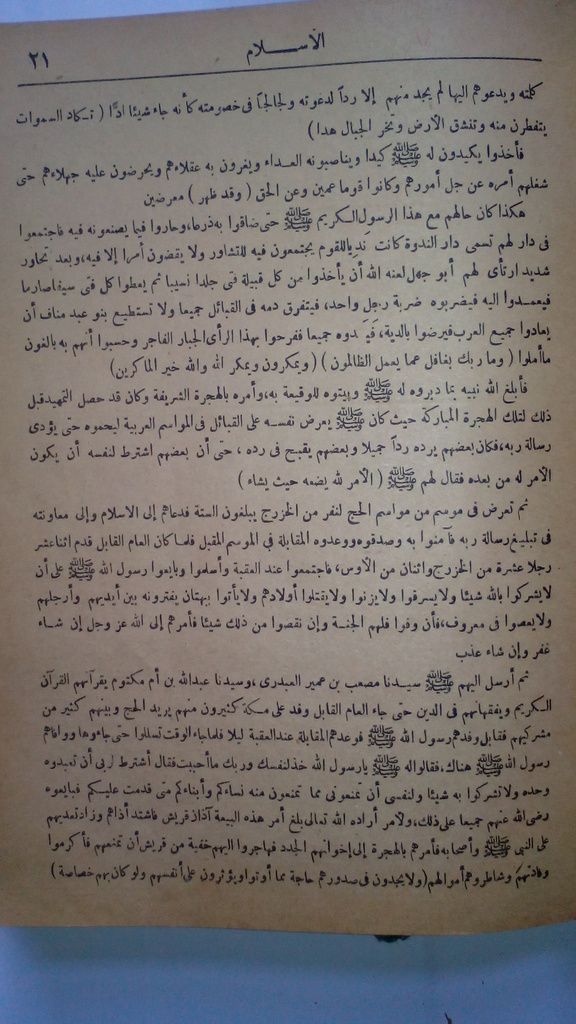 الاسلام
٢١
كلمته ويدعوهم اليها لم يجد منهم إلا رداً لدعوته ولجاجاً فى خصومته كأنه جاء شيئا ادّا ( تكاد السموات
يتفطرن منه وتنشق الأرض وتخر الجبال هدا )
فأخذوا يكيدون له ﷺ كيدا ويناصبونه العداء ويغرون به عقلاءهم ويحرضون عليه جهلاءهم حتى
شغلهم أمره عن جل أمورهم وكانوا قوما عمين وعن الحق ( وقد ظهر ) معرضين
هكذا كان حالهم مع هذا الرسول الكريم ﷺ حتى ضاقوا به ذرعا، وحاروا فيما يصنعونه فيه فاجتمعوا
فى دار لهم تسمى دار الندوة كانت للقوم يجتمعون فيه للتشاور ولا يقضون أمرا إلا فيه، وبعد تحاور
شديد ارتأى لهم أبو جهل لعنه الله أن يأخذوا من كل قبيلة فتى جلدا نسيبا ثم يعطوا كل فتى سيفا صارما
فيعمدوا اليه فيضربوه ضربة رجل واحد، فيتفرق دمه فى القبائل جميعا ولا تستطيع بنو عبد مناف أن
يعادوا جميع العرب فيرضوا بالدية، دوه جميعا ففرحوا بهذا الرأى الجبار الفاجر وحسبوا أنهم به بالغون
ما أملوا ( وما ربك بغافل عما يعمل الظالمون ) ( ويمكرون ويمكر الله والله خير الماكرين )
فأبلغ الله نبيه بما دبروه له ﷺ وبيتوه للوقيعة به، وأمره بالهجرة الشريفة وكان قد حصل التمهيد قبل
ذلك لتلك الهجرة المباركة حيث كان ﷺ يعرض نفسه على القبائل فى المواسم العربية ليحموه حتى يؤدى
رسالة ربه، فكان بعضهم يرده رداً جميلا وبعضهم يقبح فى رده ، حتى أن بعضهم اشترط لنفسه أن يكون
الأمر له من بعده فقال لهم ﷺ ( الأمر لله يضعه حيث يشاء )
ثم تعرض فى موسم من مواسم الحج لنفر من الخزرج يبلغون الستة فدعاهم إلى الاسلام وإلى معاونته
فى تبليغ رسالة ربه فآمنوا به وصدقوه ووعدوه المقابلة فى الموسم المقبل فلما كان العام القابل قدم اثنا عشر
رجلا عشرة من الخزرج واثنان من الأوس، فاجتمعوا عند العقبة وأسلموا وبايعوا رسول الله ﷺ على أن
لا يشركوا بالله شيئا ولا يسرقوا ولا يزنوا ولا يقتلوا أولادهم ولا يأتوا ببهتان يفترونه بين أيديهم وأرجلهم
ولا يعصوا فى معروف، فأن وفوا فلهم الجنة وإن نقصوا من ذلك شيئا فأمرهم إلى الله عز وجل إن شاء
غفر وإن شاء عذب
ثم أرسل اليهم ﷺ سيدنا مصعب بن عمير العبدرى ، وسيدنا عبدالله بن أم مكتوم يقرآنهم القرآن
الكريم ويفقهانهم فى الدين حتى جاء العام القابل وفد على مكة كثيرون منهم يريد الحج وبينهم كثير من
مشركيهم فقابل وفدهم رسول الله ﷺ فوعدهم المقابلة عند العقبة ليلا فلما جاء الوقت تسللوا حتى جاءوها ووافاهم
رسول الله ﷺ هناك، فقالوا له ﷺ يا رسول الله خذ لنفسك وربك ما أحببت فقال أشترط لربى أن تعبدوه
وحده ولا تشركوا به شيئا ولنفسى أن تمنعونى مما تمنعون منه نساءكم وأبناءكم متى قدمت عليكم فبايعوه
رضى الله عنهم جميعا على ذلك، ولأمر أراده الله تعالى بلغ أمر هذه البيعة آذان قريش فاشتد أذاهم وزاد تعذيبهم
على النبى ﷺ وأصحابه فأمرهم بالهجرة إلى إخوانهم الجدد فهاجروا اليهم خفية من قريش أن تمنعهم فأكرموا
وفادتهم وشاطروهم أموالهم ( ولا يجدون فى صدورهم حاجة مما أوتوا ويؤثرون على أنفسهم ولو كان بهم خصاصة )